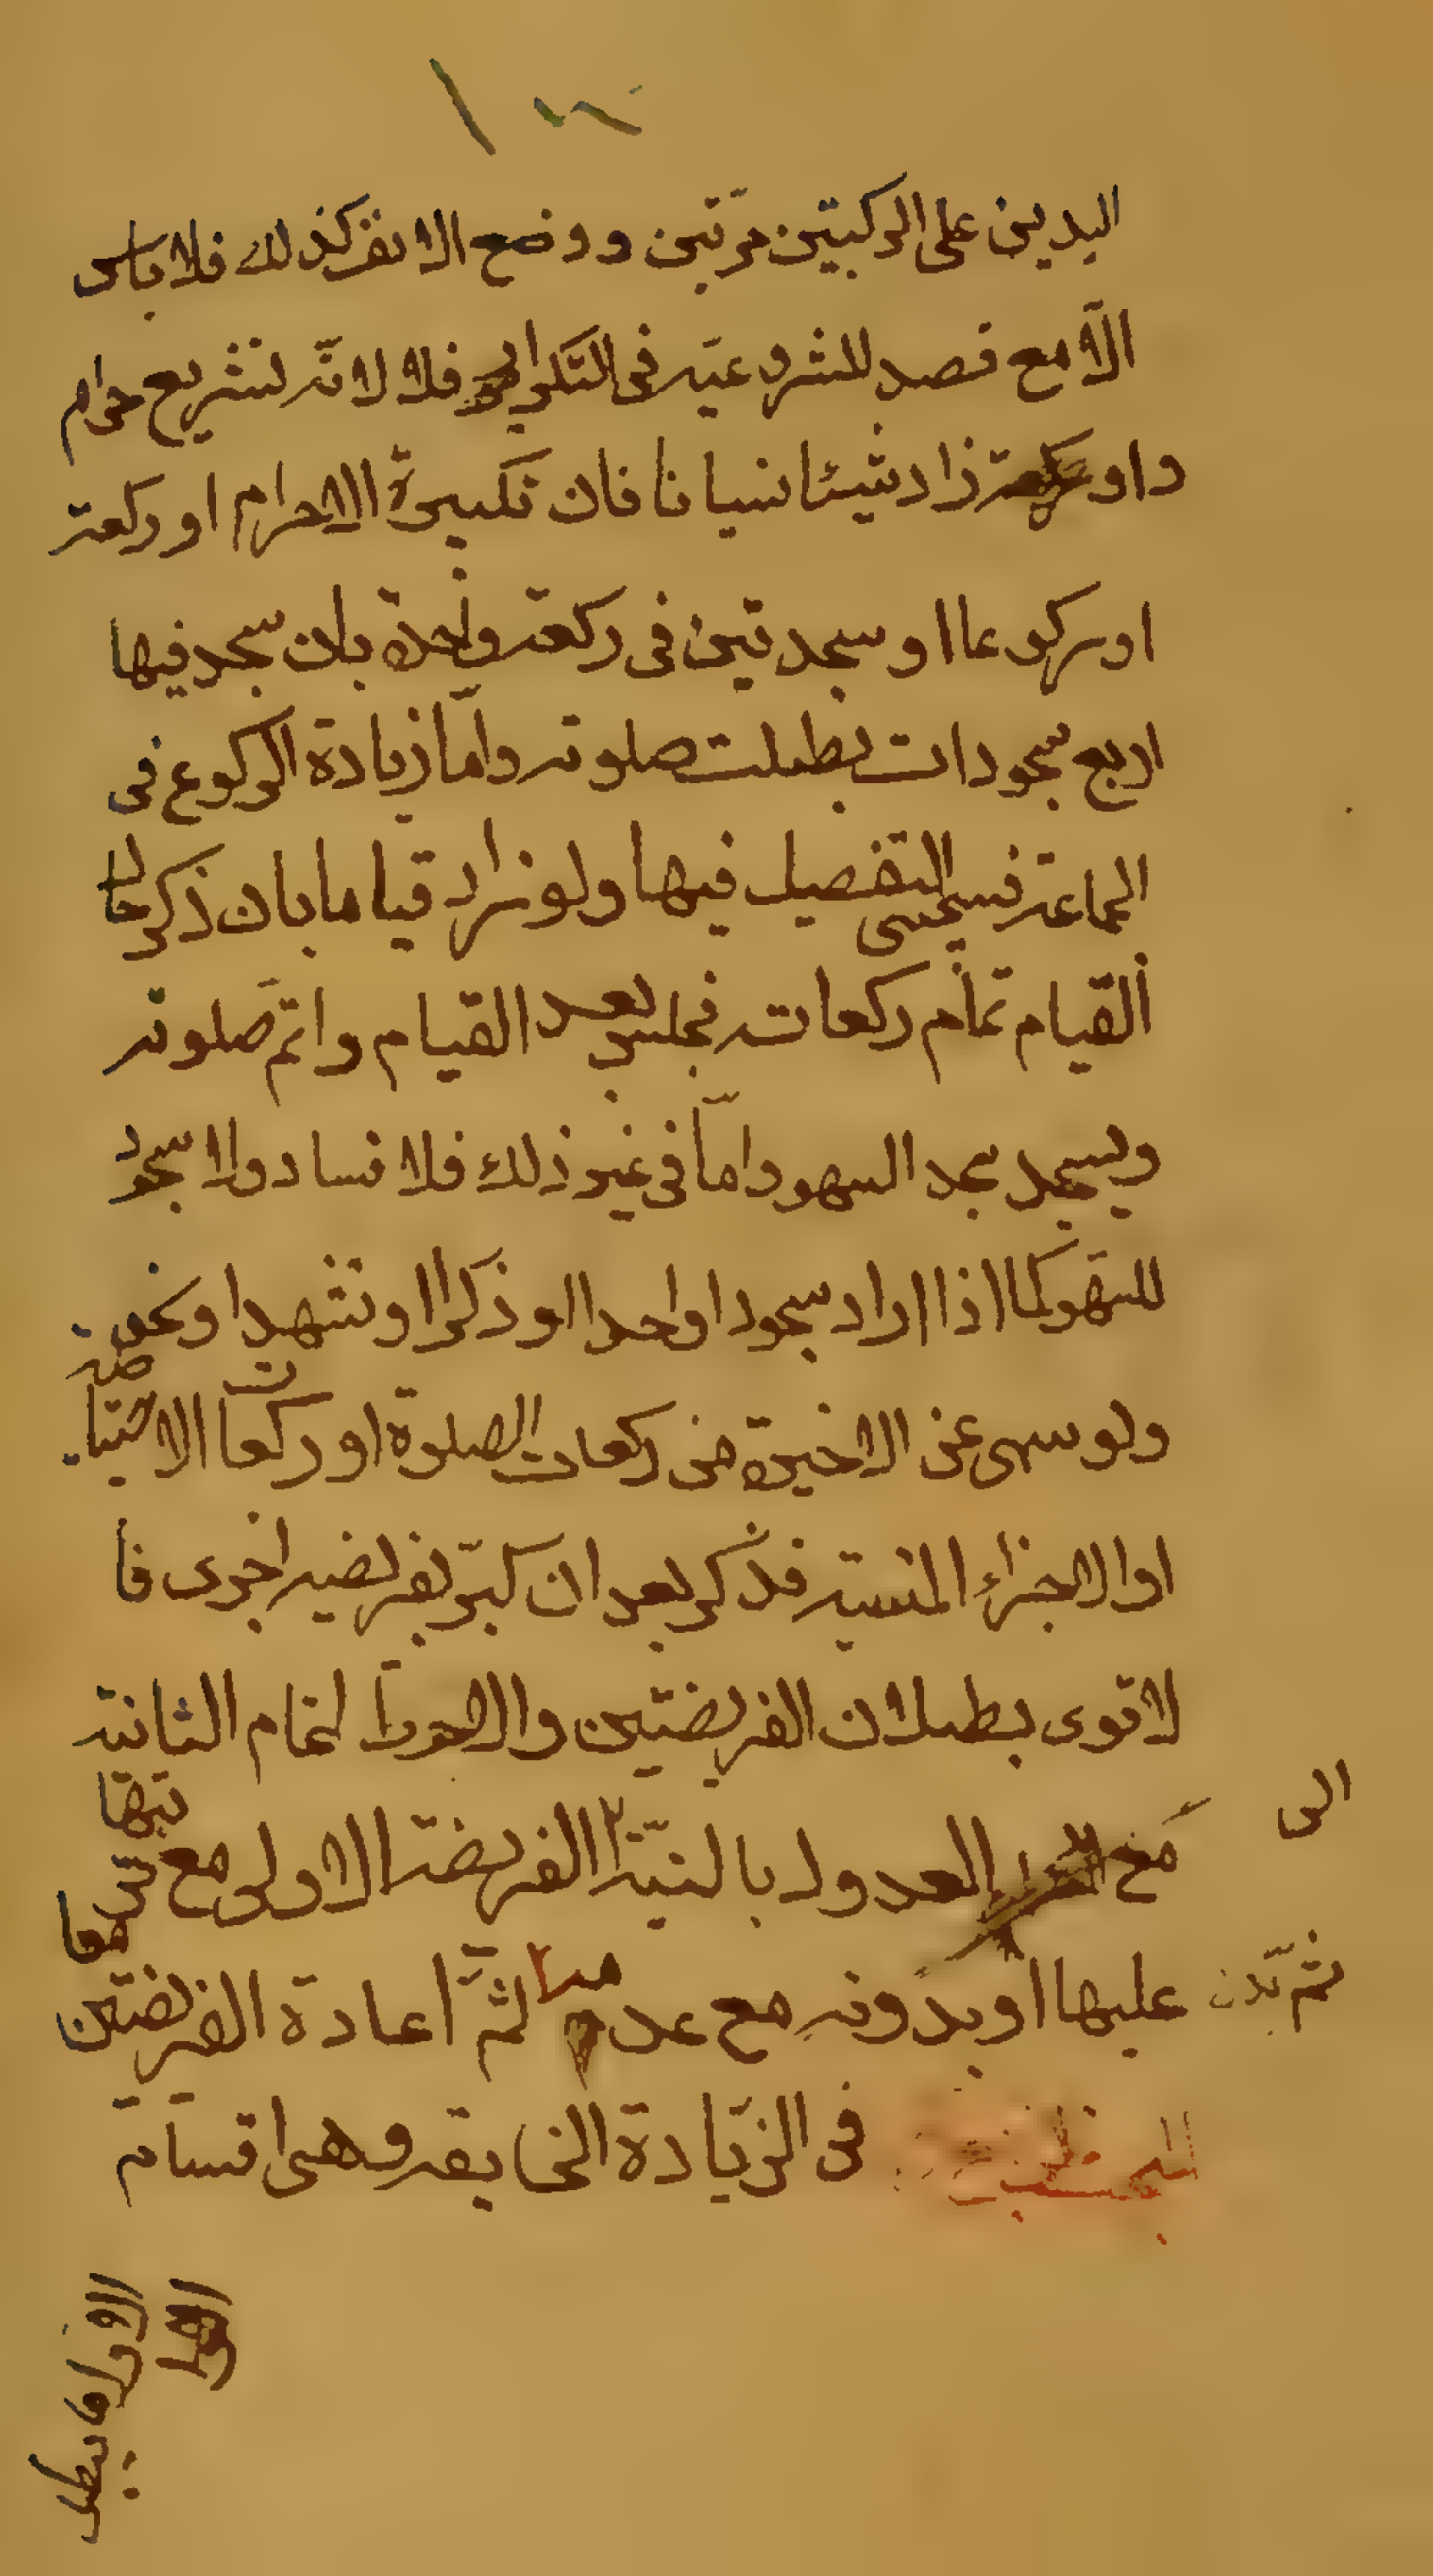 اليدين على الركبتين مرتين ووضع الانف كذلك فلا باس
الّا مع قصد المشروعيّه فى التكرار فلا لانّه تشريع حرام
زاد شيئا نسيانا فان تكبيرة الاحرام او ركعة
او ركوعا او سجدتين فى ركعة واحدة بان سجد فيها
اربع سجودات بطلت صلوته وامّا زيادة الركوع فى
الجماعة فسيجىء التفصيل فيها ولو زاد قياما بان ذكر حال
القيام تمام ركعاته فجلس بعد القيام واتم صلوته
ويسجد سجد السهو وامّا فى غير ذلك فلا فساد ولا سجود
للسّهو كما اذا زاد سجودا واحدا او ذكرا او تشهدا ونحوه
ولو سهى عن الاخيرة من ركعات الصلوة او ركعات الاحتياطية
او الاجزاء المنسيّه فذكر بعد ان كبّر بفريضه اخرى فا
لاقوى بطلان الفريضتين والاحوط اتمام الثانية
مع العدول بالنيّة الى الفريضة الاولى مع ترتبها
عليها او بدونه مع عدمه ثمّ اعادة الفريضتين معا
فى الزّيادة التى يقر وهى اقسام
الاول ما يبطل